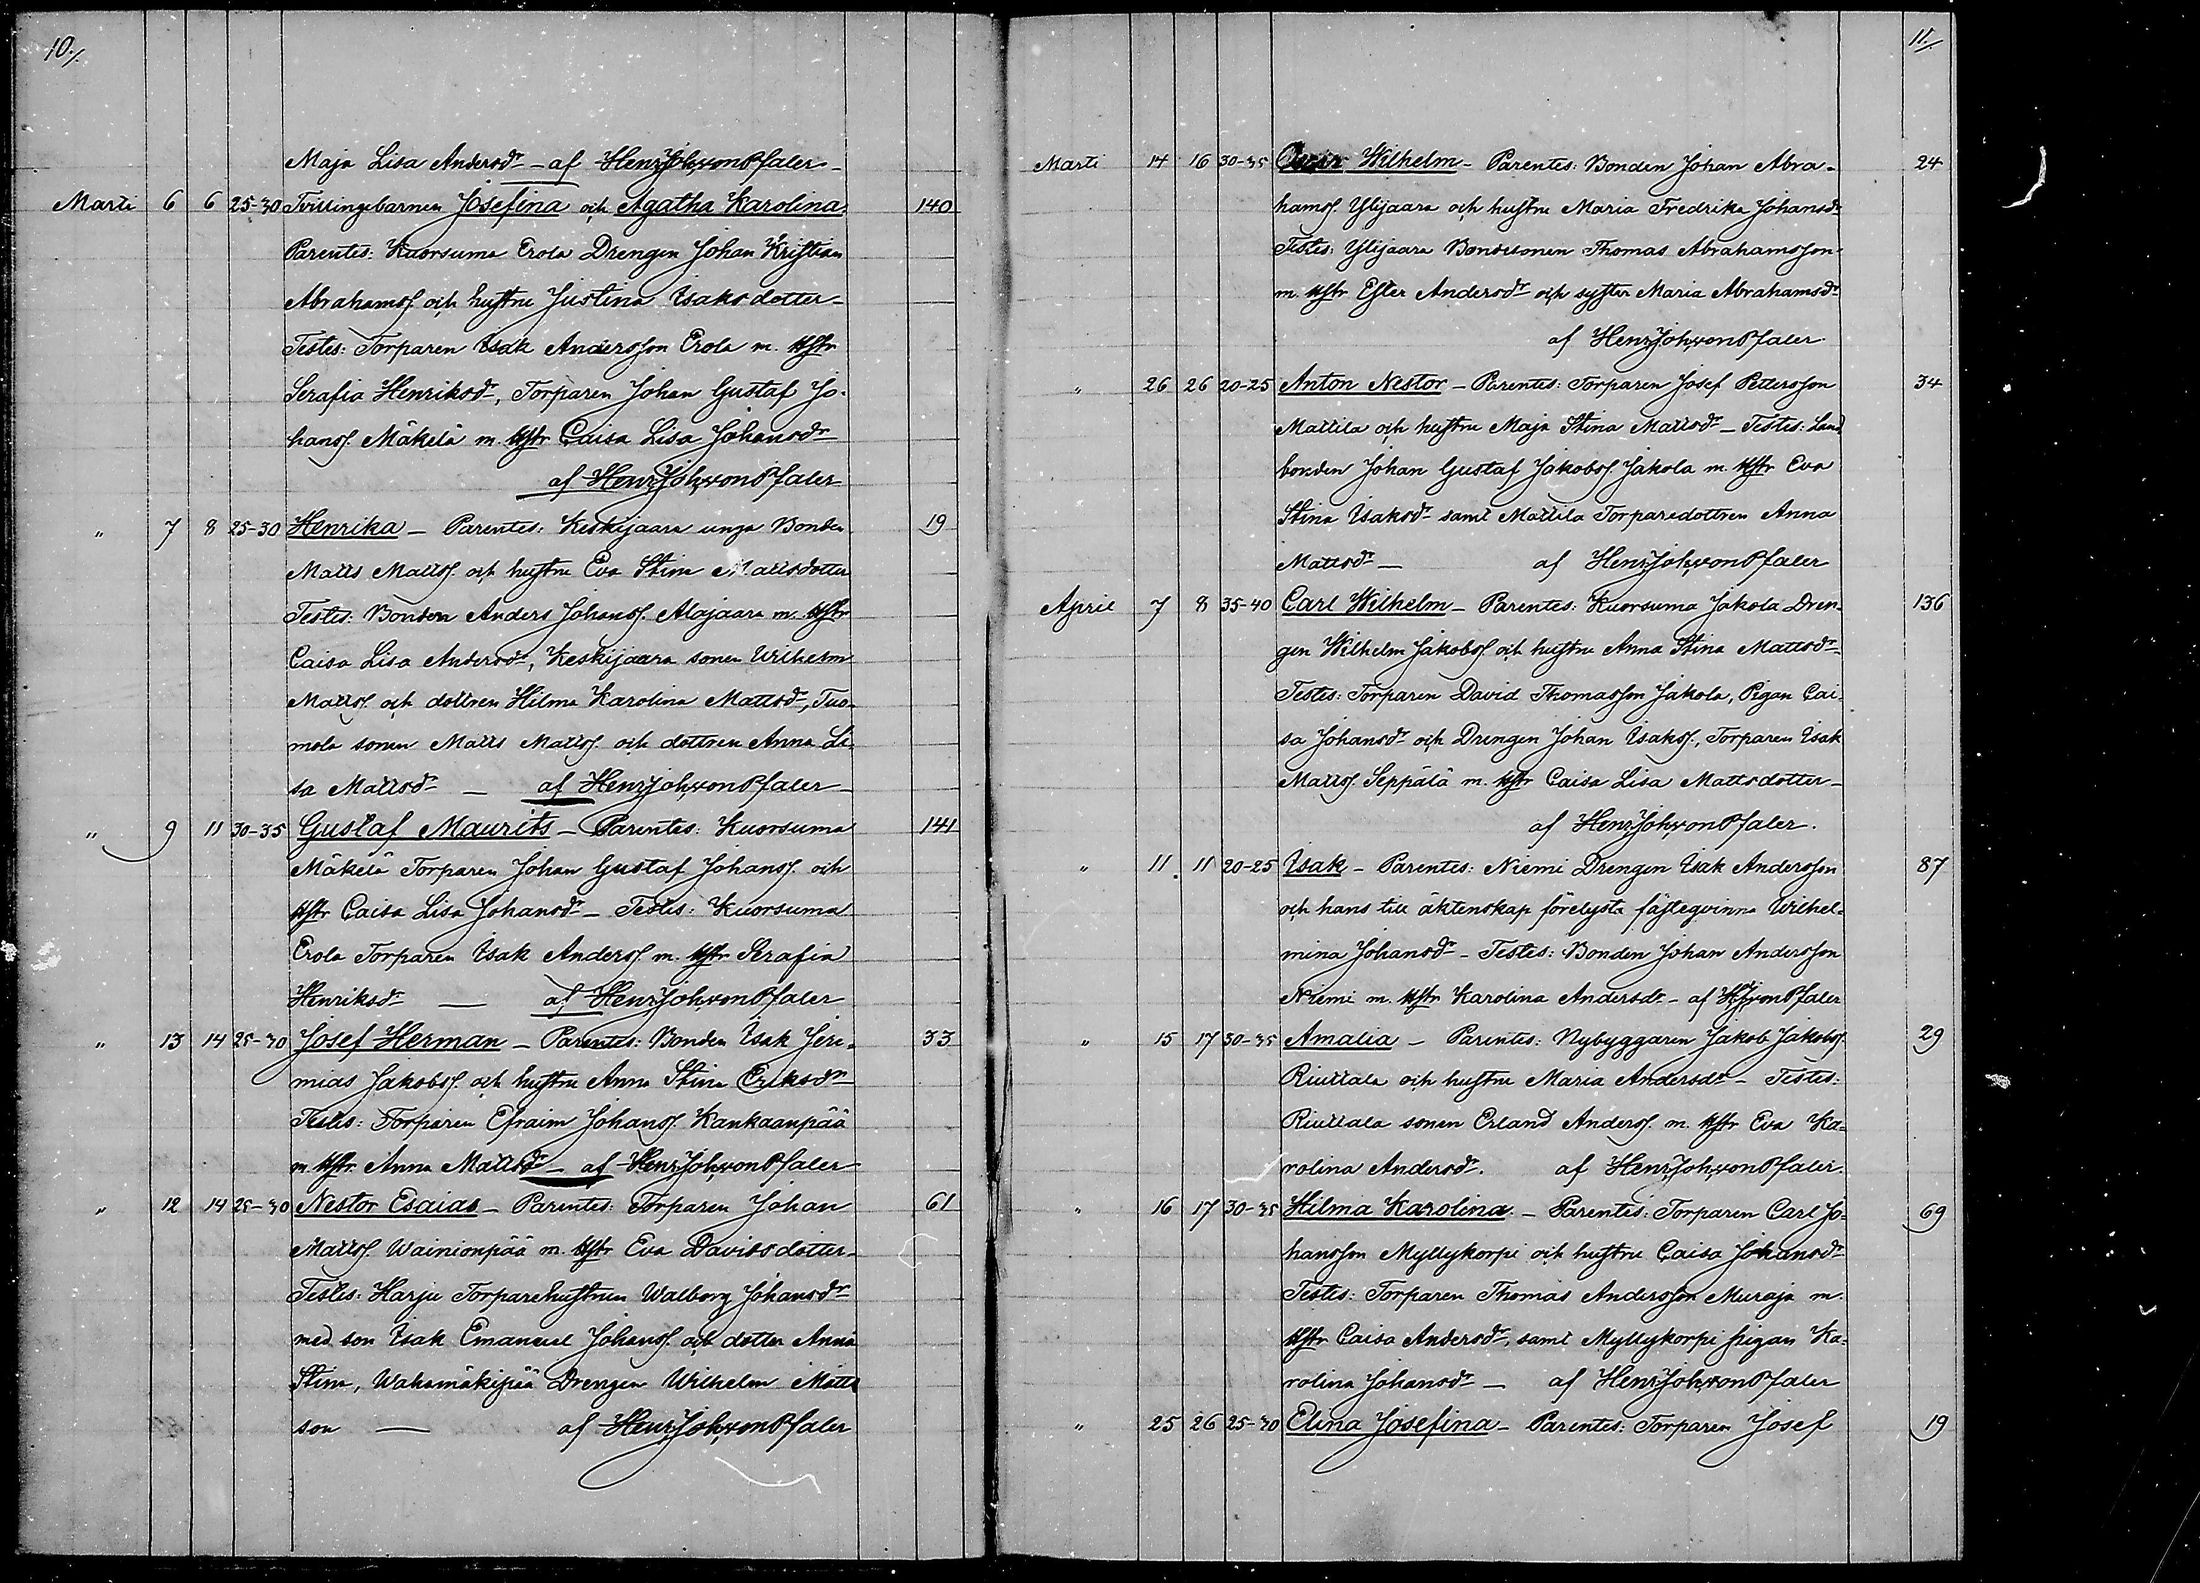 10./
Maja Lisa Andersdr – af Henr. Joh. von Pfaler –
Marti 6 6 25-30 Tvillingebarnen Josefina och Agatha Karolina. 140
Parentes: Kuorsuma Erola Drengen Johan Kristian
Abrahamss. och hustru Justina Isaksdotter –
Testes: Torparen Isak Andersson Erola m. hstr
Serafia Henriksdr, Torparen Johan Gustaf Jo-
hanss. Mäkelä m. hstr Caisa Lisa Johansdr
af Henr. Joh. von Pfaler
" 7 8 25-30 Henrika – Parentes: Keskijaara unga Bonden 19
Matts Mattss. och hustru Eva Stina Mattsdotter
Testes: Bonden Anders Johanss. Alajaara m. hstr
Caisa Lisa Andersdr, Keskijaara sonen Wilhelm
Mattss. och dottren Hilma Karolina Mattsdr, Tuo-
mola sonen Matts Mattss. och dottren Anna Li-
sa Mattsdr – af Henr. Joh. von Pfaler –
" 9 11 30-35 Gustaf Maurits – Parentes: Kuorsuma 141
Mäkelä Torparen Johan Gustaf Johanss. och
hstr Caisa Lisa Johansdr – Testes: Kuorsuma
Erola Torparen Isak Anderss. m. hstr Serafia
Henriksdr – af Henr. Joh. von Pfaler
" 13 14 25-30 Josef Herman – Parentes: Bonden Isak Jere- 33
mias Jakobss. och hustru Anna Stina Eriksdr
Testes: Torparen Efraim Johanss. Kankaanpää
m. hstr. Anna Mattsdr – af Henr. Joh. von Pfaler
" 12 14 25-30 Nestor Esaias – Parentes: Torparen Johan 61
Mattss. Wainionpää m. hstr Eva Davidsdotter –
Testes: Harju Torparehustrun Walborg Johansdr
med son Isak Emanuel Johanss. och dotter Anna
Stina, Wahamäkipää Drengen Wilhelm Matts
son – af Henr. Joh. von Pfaler
11./
Marti 14 16 30-35 Oscar Wilhelm – Parentes: Bonden Johan Abra- 24
hamss. Ylijaara och hustru Maria Fredrika Johansdr
Testes: Ylijaara Bondesonen Thomas Abrahamsson
m. hstr Ester Andersdr och syster Maria Abrahamsdr
af Henr. Joh. von Pfaler
" 26 26 20-25 Anton Nestor – Parentes: Torparen Josef Pettersson 34
Mattila och hustru Maja Stina Mattsdr – Testes: Land
bonden Johan Gustaf Jakobss. Jakola m. hstr Eva
Stina Isaksdr samt Mattila Torparedottren Anna
Mattsdr – af Henr. Joh. von Pfaler
April 7 8 35-40 Carl Wilhelm – Parentes: Kuorsuma Jakola Dren- 136
gen Wilhelm Jakobss och hustru Anna Stina Mattsdr –
Testes: Torparen David Thomasson Jakola, Pigan Cai-
sa Johansdr och Drengen Johan Isakss., Torparen Isak
Mattss. Seppälä m. hstr Caisa Lisa Mattsdotter –
af Henr. Joh. von Pfaler.
" 11 11 20-25 Isak – Parentes: Niemi Drengen Isak Andersson 87
och hans till äktenskap förelysta fästeqvinna Wilhel-
mina Johansdr – Testes: Bonden Johan Andersson
Niemi m. hstr Karolina Andersdr – af H. J. von Pfaler
" 15 17 30-35 Amalia – Parentes: Nybyggaren Jakob Jakobss. 29
Riuttala och hustru Maria Andersdr – Testes:
Riuttala sonen Erland Anderss. m. hstr Eva Ka-
rolina Andersdr. af Henr. Joh. von Pfaler.
" 16 17 30-35 Hilma Karolina – Parentes: Torparen Carl Jo- 69
hansson Myllykorpi och hustru Caisa Johansdr
Testes: Torparen Thomas Andersson Muraja m.
hstr Caisa Andersdr, samt Myllykorpi pigan Ka-
rolina Johansdr – af Henr. Joh. von Pfaler
" 25 26 25-30 Elina Josefina – Parentes: Torparen Josef 19